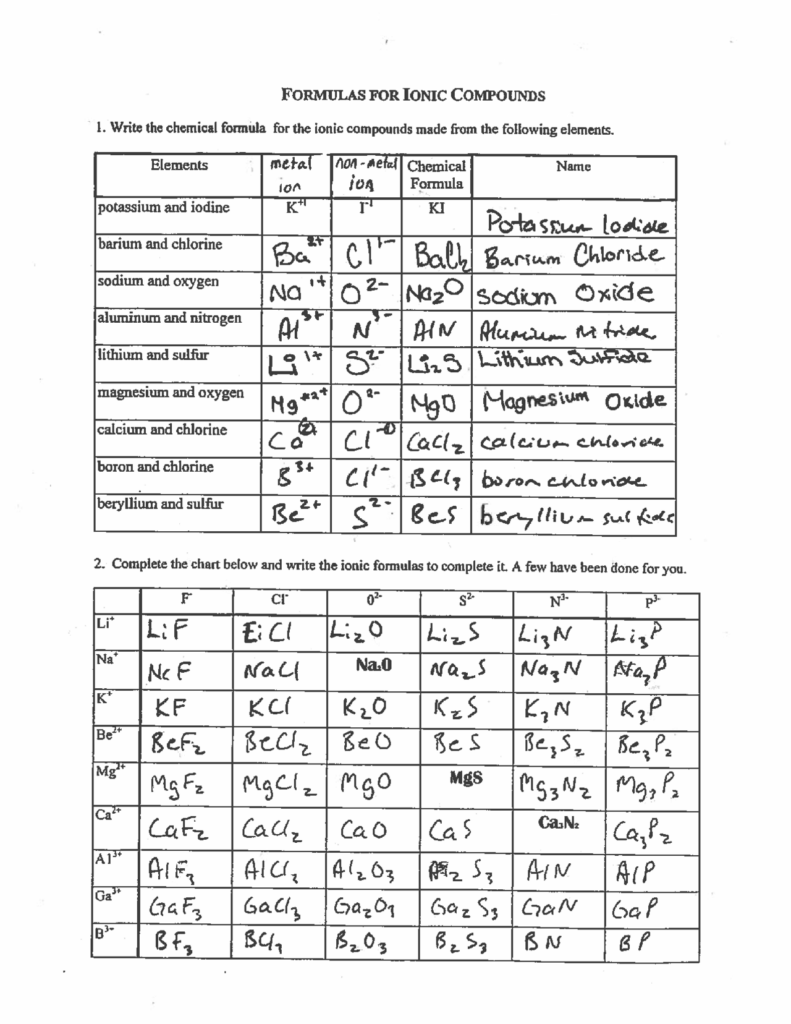 FORMULAS FOR IONIC COMPOUNDS
1. Write the chemical formula for the ionic compounds made from the following elements.
Elements metal ion non-metal ion Chemical Formula Name
potassium and iodine K⁺¹ I⁻¹ KI Potassium Iodide
barium and chlorine Ba²⁺ Cl¹⁻ BaCl₂ Barium Chloride
sodium and oxygen Na¹⁺ O²⁻ Na₂O Sodium Oxide
aluminum and nitrogen Al³⁺ N³⁻ AlN Aluminum Nitride
lithium and sulfur Li¹⁺ S²⁻ Li₂S Lithium Sulfide
magnesium and oxygen Mg²⁺ O²⁻ MgO Magnesium Oxide
calcium and chlorine Ca Cl CaCl₂ calcium chloride
boron and chlorine B³⁺ Cl¹⁻ BCl₃ boron chloride
beryllium and sulfur Be²⁺ S²⁻ BeS beryllium sulfide
2. Complete the chart below and write the ionic formulas to complete it. A few have been done for you.
F⁻ Cl⁻ 0²⁻ S²⁻ N³⁻ P³⁻
Li⁺ LiF LiCl Li₂O Li₂S Li₃N Li₃P
Na⁺ NaF NaCl Na₂0 Na₂S Na₃N Na₃P
K⁺ KF KCl K₂O K₂S K₃N K₃P
Be²⁺ BeF₂ BeCl₂ BeO BeS Be₃S₂ Be₃P₂
Mg²⁺ MgF₂ MgCl₂ MgO MgS Mg₃N₂ Mg₃P₂
Ca²⁺ CaF₂ CaCl₂ CaO CaS Ca₃N₂ Ca₃P₂
Al³⁺ AlF₃ AlCl₃ Al₂O₃ Al₂S₃ AlN AlP
Ga³⁺ GaF₃ GaCl₃ Ga₂O₃ Ga₂S₃ GaN GaP
B³⁺ BF₃ BCl₃ B₂O₃ B₂S₃ BN BP